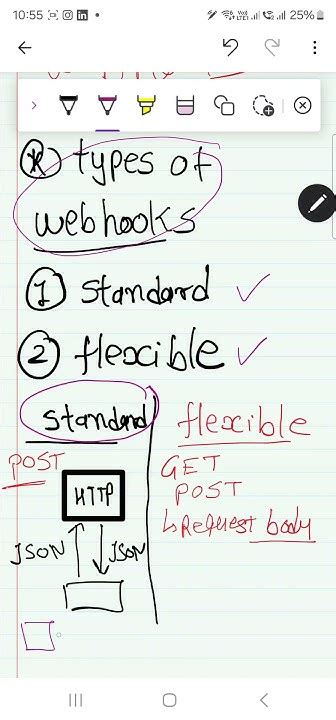 10:55
25%
* types of
webhooks
1 Standard
2 flexible
Standard
POST
HTTP
JSON JSON
flexible
GET
POST
↳ Request body